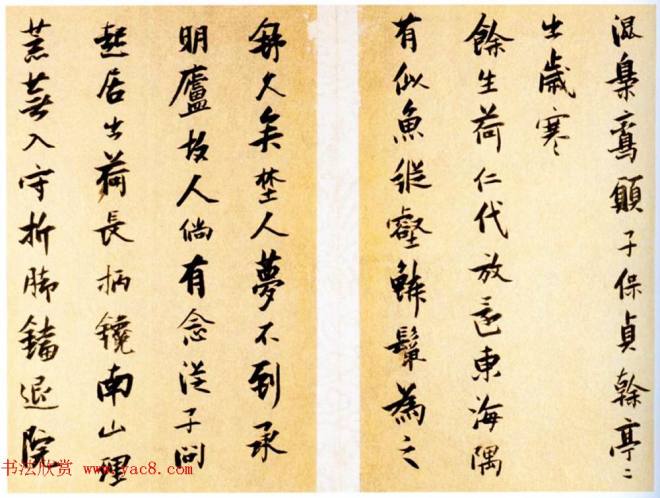 混梟鸞願子保貞榦亭〻
出歲寒
餘生荷仁代放還東海隅
有似魚縱壑鱗鬣為之
舒久矣埜人夢不到承
明廬故人倘有念從子問
起居出荷長柄鑱南山理
荒蕪入守折腳鐺退院
书法欣赏 www.yac8.com